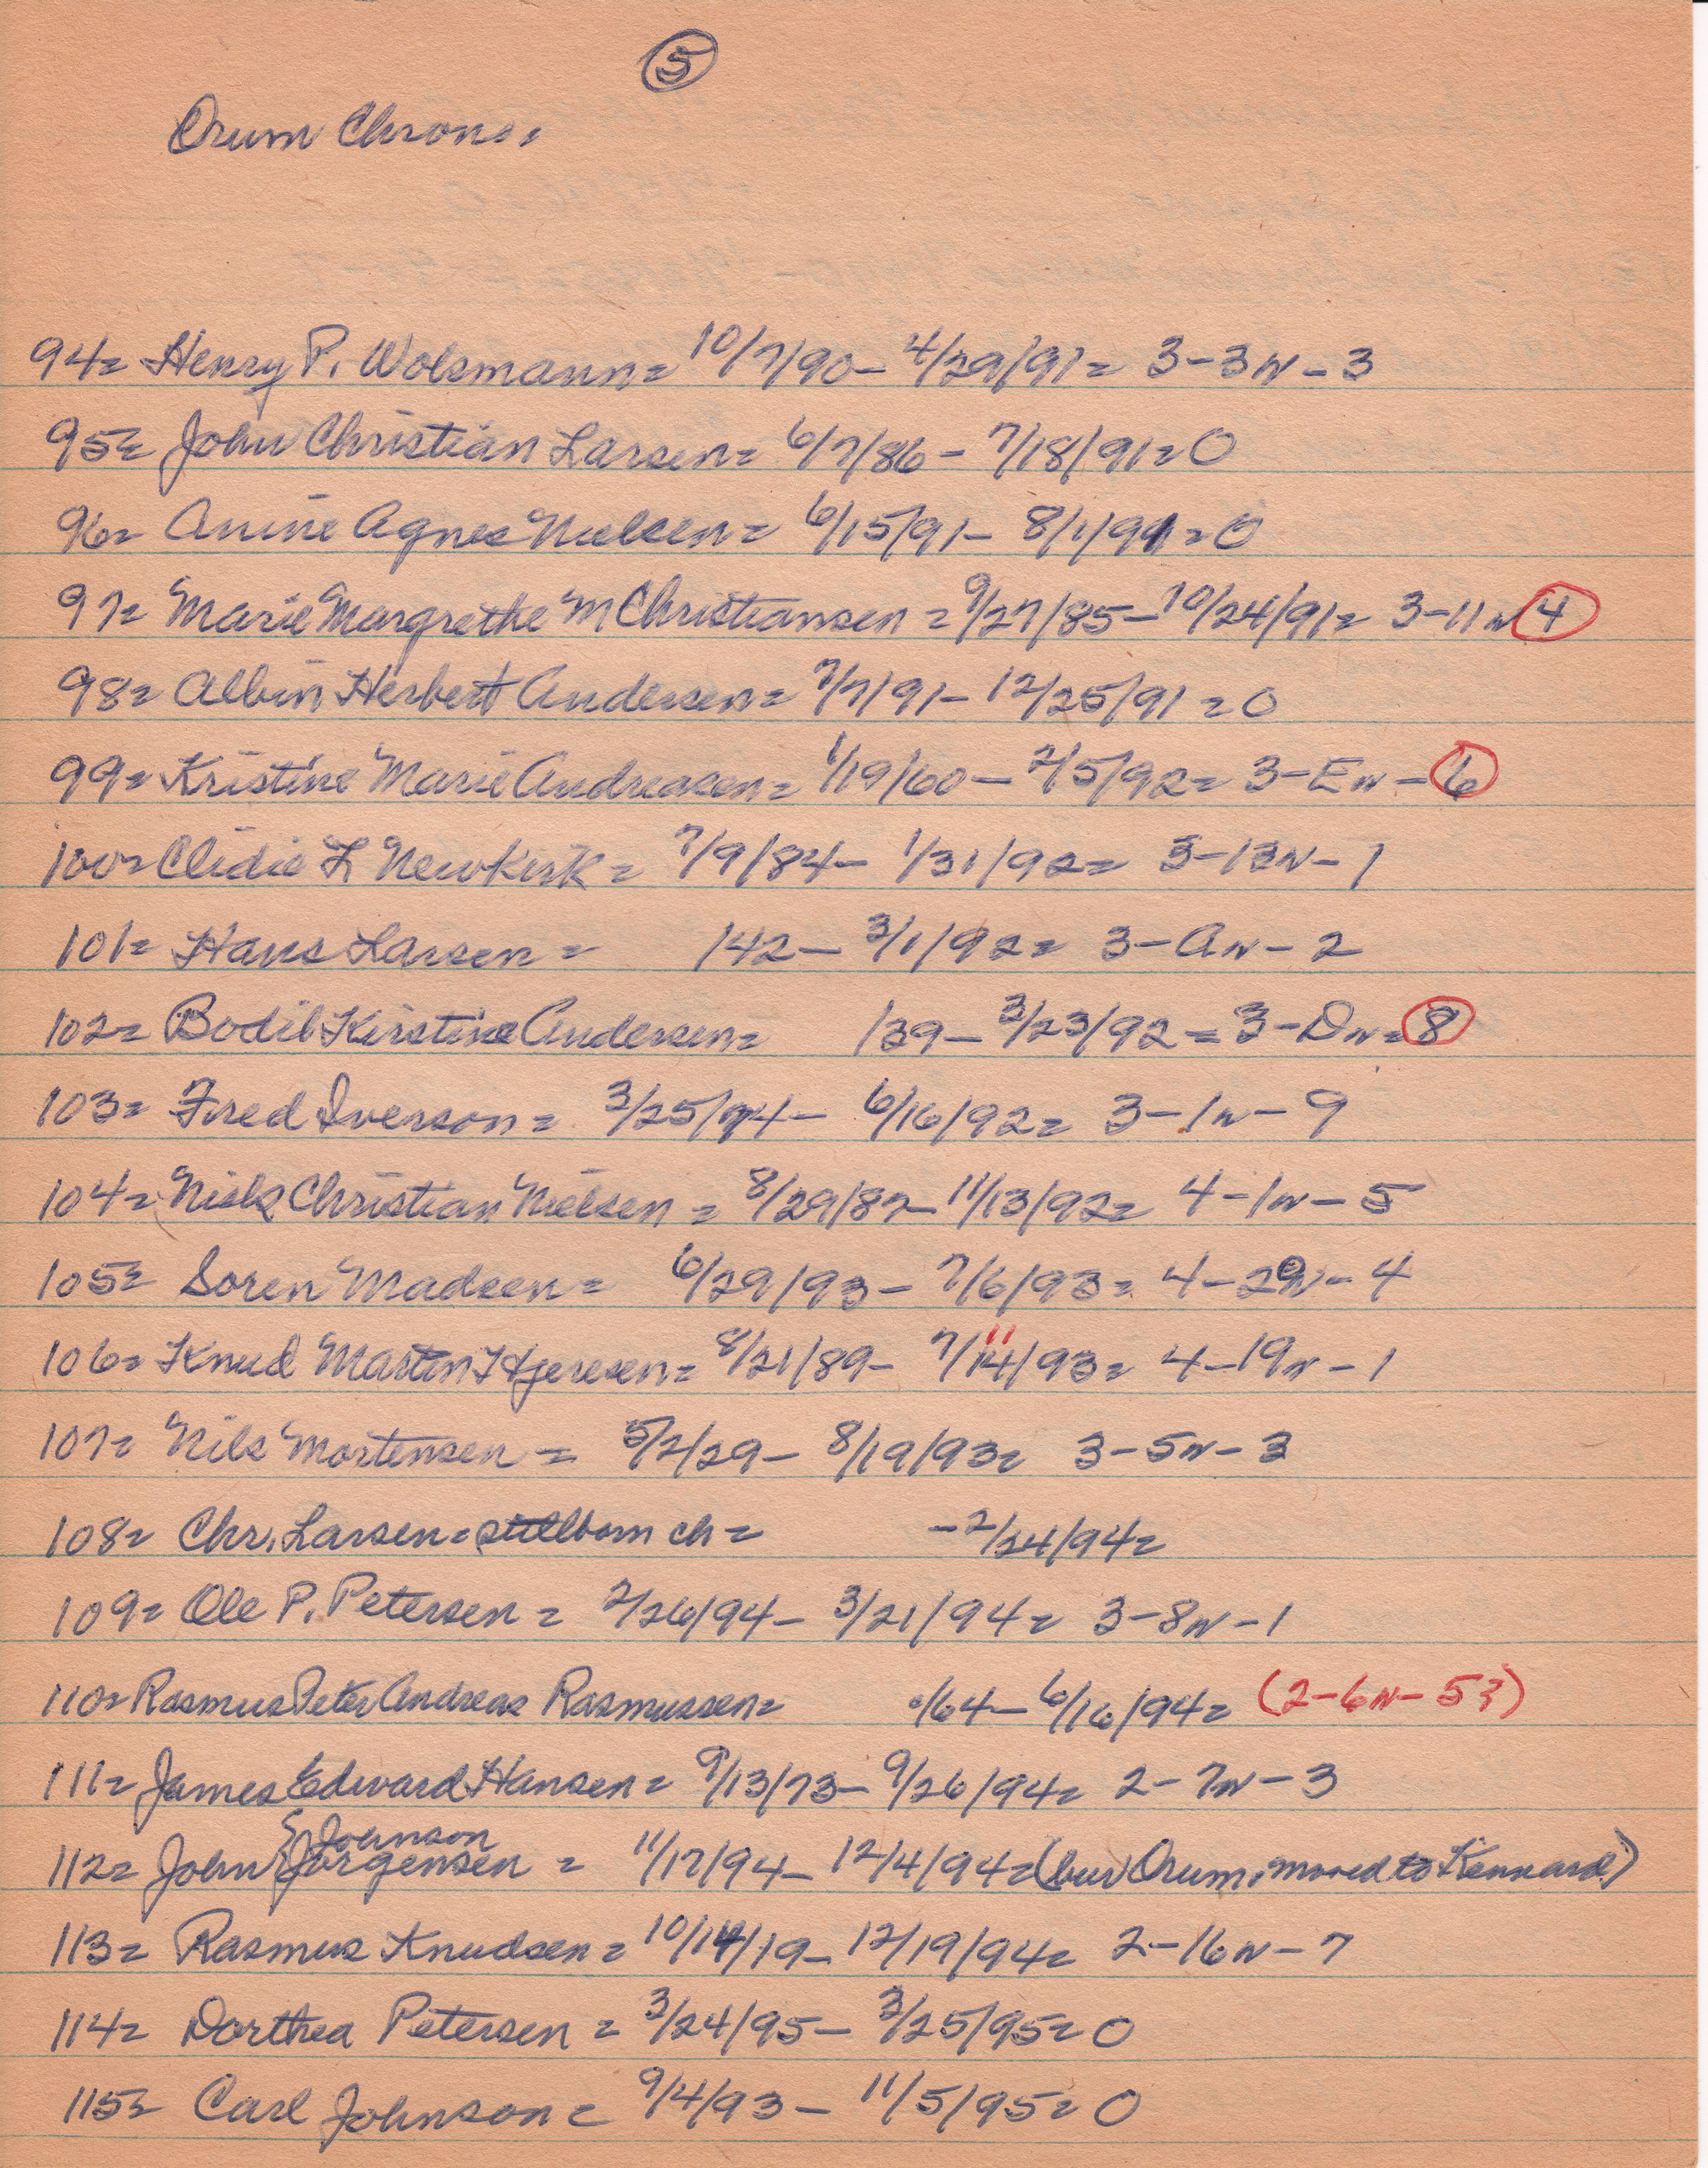 5
Orum Chron.
94= Henry P. Wolsmann= 10/7/90- 4/29/91= 3-3N-3
95= John Christian Larsen= 6/7/86- 7/18/91=0
96= Anine Agnes Nielsen= 6/15/91- 8/1/91=0
97= Marie Margrethe M Christiansen =9/27/85-10/24/91= 3-11N 4
98= Albin Herbert Andersen= 7/7/91- 12/25/91=0
99= Kristine Marie Andreasen= 1/19/60- 2/5/92= 3-EN-6
100= Clidie L Newkirk= 7/9/84- 1/31/92= 3-13N-1
101= Hans Larsen= 142- 3/1/92= 3-AN-2
102= Bodil Kirstine Andersen= 139- 3/23/92=3-DN=8
103= Fred Iverson= 3/25/74- 6/16/92= 3-1N-9
104= Niels Christian Nielsen= 8/29/87- 11/13/92= 4-1N-5
105= Soren Madsen= 6/29/93- 7/6/93= 4-20N-4
106= Knud Martin Hjeresen= 8/21/89- 7/14/93= 4-19N-1
11
107= Nils Mortensen= 5/2/29- 8/19/93= 3-5N-3
108= Chr. Larsen=stillborn ch= -2/24/94=
109= Ole P. Petersen= 2/26/94- 3/21/94= 3-8N-1
110= Rasmus Peter Andreas Rasmussen= /64- 6/16/94= (2-6N-5?)
111= James Edward Hansen= 9/13/73- 9/26/94= 2-7N-3
Johnson
112= John Jorgensen= 11/17/94- 12/4/94=(bur Orum, moved to Kennard)
113= Rasmus Knudsen= 10/14/19- 12/19/94= 2-16N-7
114= Dorthea Petersen= 3/24/95- 3/25/95=0
115= Carl Johnson= 9/4/93- 11/5/95=0